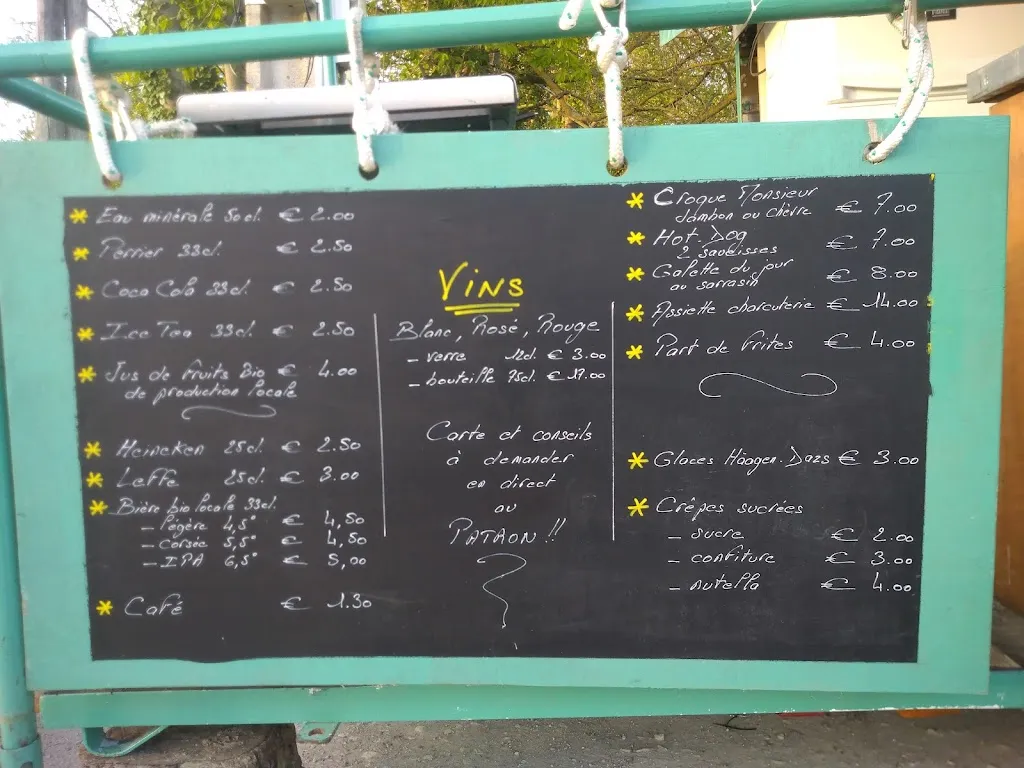 * Eau minérale 50cl. € 2.00
* Perrier 33cl. € 2.50
* Coca Cola 33cl. € 2.50
* Ice Tea 33cl. € 2.50
* Jus de fruits Bio € 4.00
de production locale
* Heineken 25cl. € 2.50
* Leffe 25cl. € 3.00
* Bière bio locale 33cl.
- Légère 4,5° € 4,50
- Corsée 5,5° € 4,50
- IPA 6,5° € 5,00
* Café € 1.30
Vins
Blanc, Rosé, Rouge
- verre 12cl. € 3.00
- bouteille 75cl. € 17.00
Carte et conseils
à demander
en direct
au
PATRON !!
* Croque Monsieur € 7.00
Jambon ou chèvre
* Hot-Dog € 7.00
2 saucisses
* Galette du jour € 8.00
au sarrasin
* Assiette charcuterie € 14.00
* Part de Frites € 4.00
* Glaces Häagen-Dazs € 3.00
* Crêpes sucrées
- sucre € 2.00
- confiture € 3.00
- nutella € 4.00